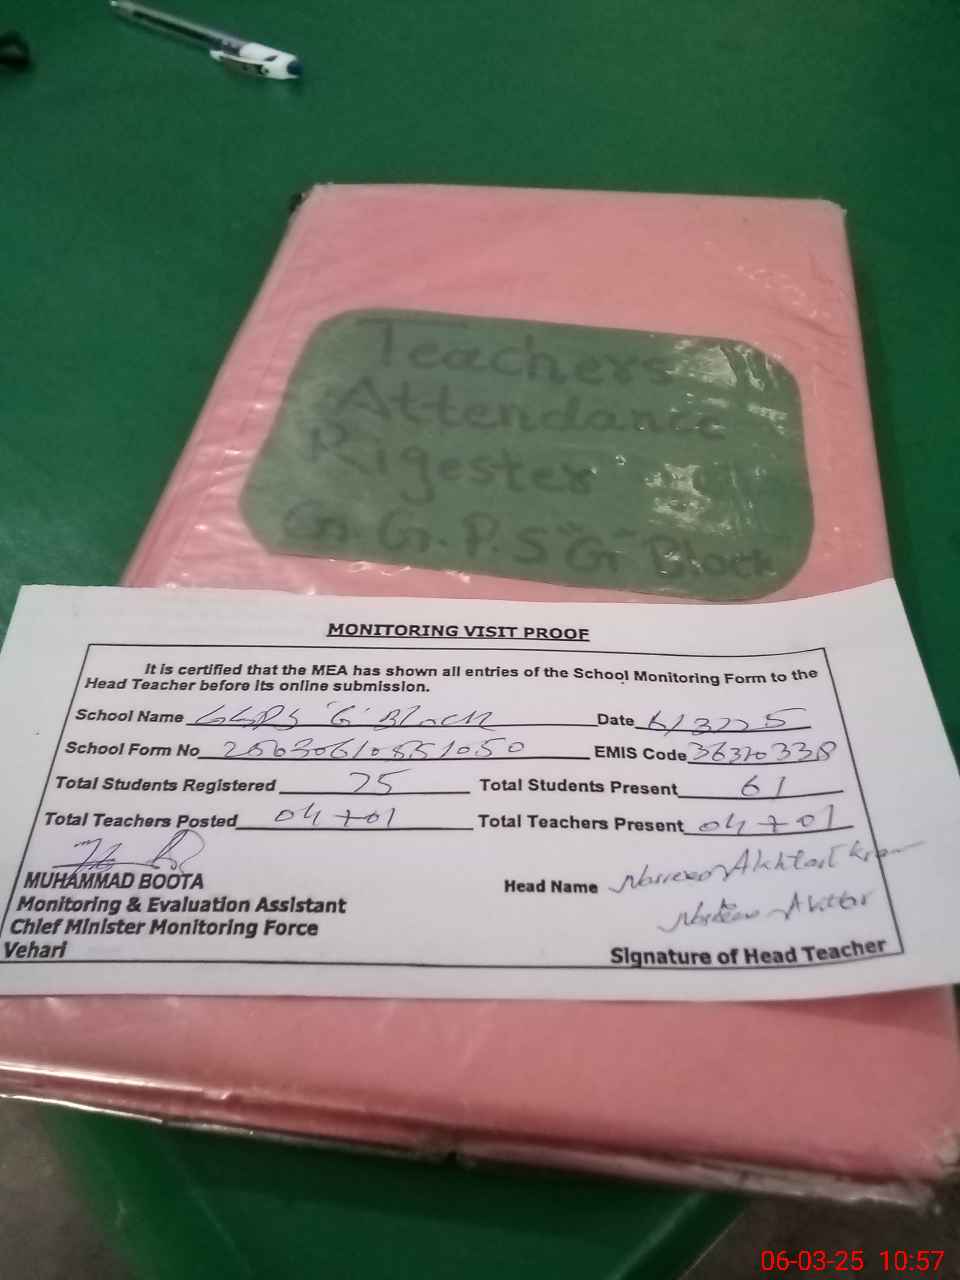 Teachers
Attendance
Rigester
G.G.P.S "G" Block
MONITORING VISIT PROOF
It is certified that the MEA has shown all entries of the School Monitoring Form to the
Head Teacher before its online submission.
School Name GGPS "G" Block Date 6/3/2025
School Form No EMIS Code 36320338
Total Students Registered 75 Total Students Present 61
Total Teachers Posted 04+01 Total Teachers Present 04+01
MUHAMMAD BOOTA Head Name Nasreen Akhtar
Monitoring & Evaluation Assistant Nasreen Akhtar
Chief Minister Monitoring Force
Vehari Signature of Head Teacher
06-03-25 10:57